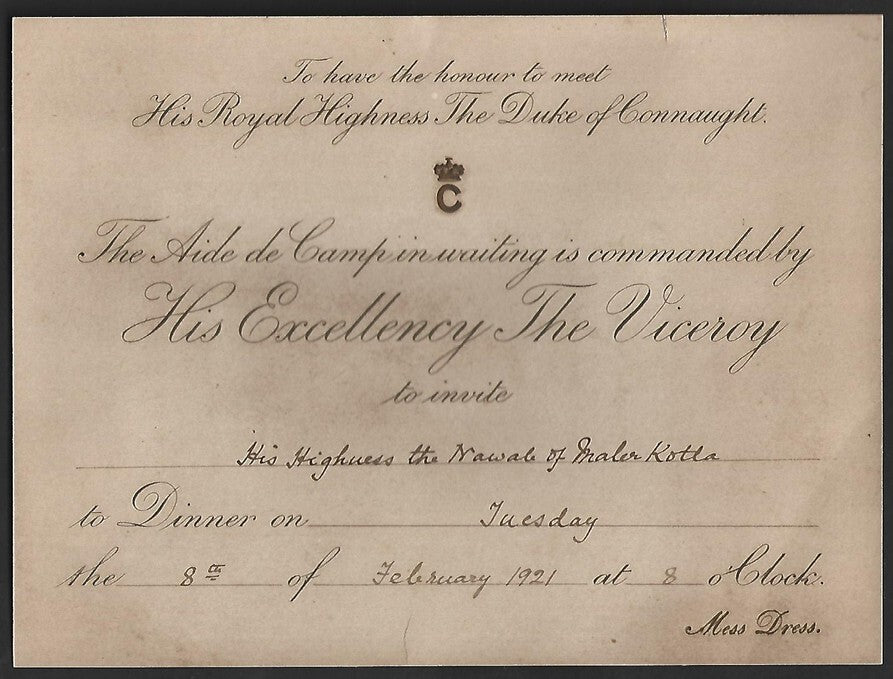 To have the honour to meet
His Royal Highness The Duke of Connaught.
C
The Aide de Camp in waiting is commanded by
His Excellency The Viceroy
to invite
His Highness the Nawab of Maler Kotla
to Dinner on Tuesday
the 8th of February 1921 at 8 o'Clock.
Mess Dress.